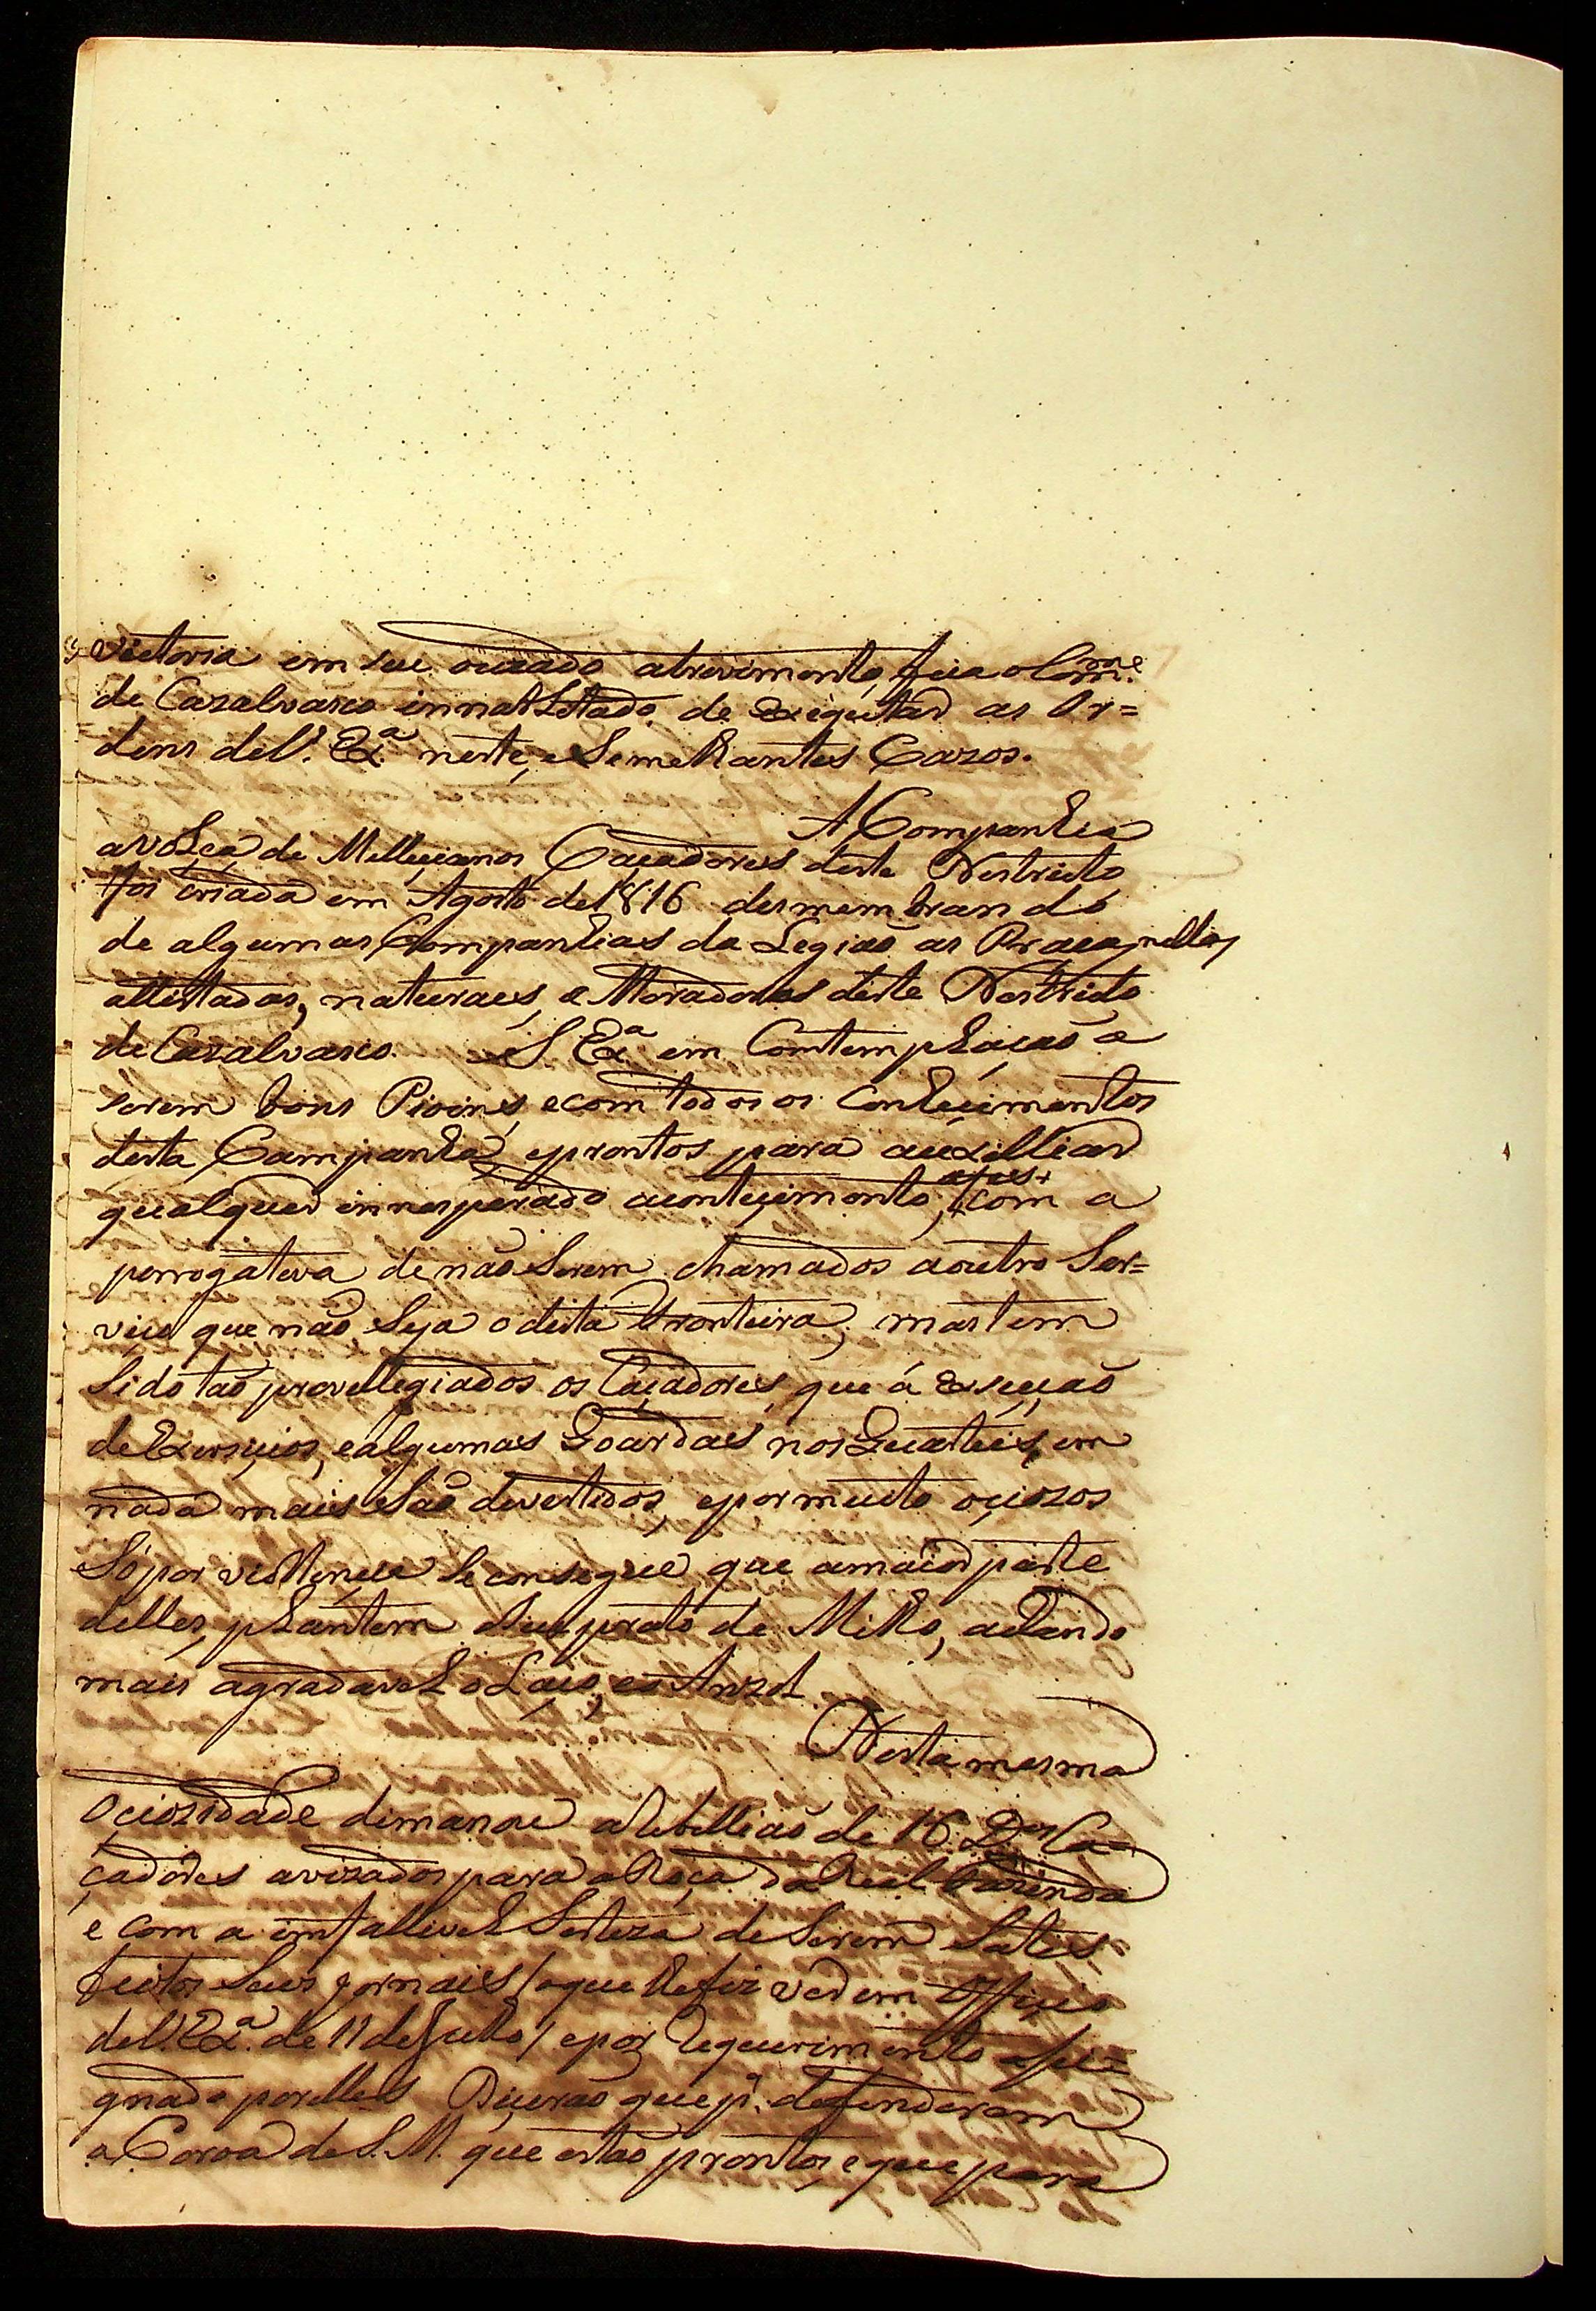 victoria em seu ouzado atrevimento, fica o Com.e
de Cazalvasco innabilitado de exequtar as Or=
dens de V. Ex.a neste, e Semelhantes Cazos.
A Companhia
avulça de Milliçianos Caçadores deste Destricto
foi criada em Agosto de 1816 desmembrando
de algumas Companhias da Legiaõ as Praças nellas
allistadas, naturaes, e Moradores deste Destricto
de Cazalvasco. S Ex.a em Contemplaçaõ a
serem bons Pioins, e com todos os conheçimentos
desta Campanha, e prontos para auxilliar
qualquer innesperado aconteçimento, com a
perrogativa de naõ Serem chamados a outro Ser=
viço que naõ Seja o desta Fronteira, mas tem
Sido taõ previllegiados os Caçadores, que á exseçaõ
de Exersiçios, e algumas Goardas nos Quarteis, em
nada mais Saõ devertidos, e por muito oçiozos
Só por viollençia Se consegue que a maior parte
delles, plantem hum prato de Milho, achando
mais agradavel o Laço, e o Anzol.
Desta mesma
Ociozidade dimanou a Rebelliaõ de 16 Dos Ca=
çadores avizados para a Roça da Real Fazenda
e com a imfallivel Serteza de Serem Satis=
feitos Seus jornais / o que lhe fiz ver em Offiçio
de V. Ex.a de 11 de Julho / e por Requerimento assi=
gnado por elles Diçeraõ que já defenderam
a Coroa de S. M. que estaõ prontos, e que para